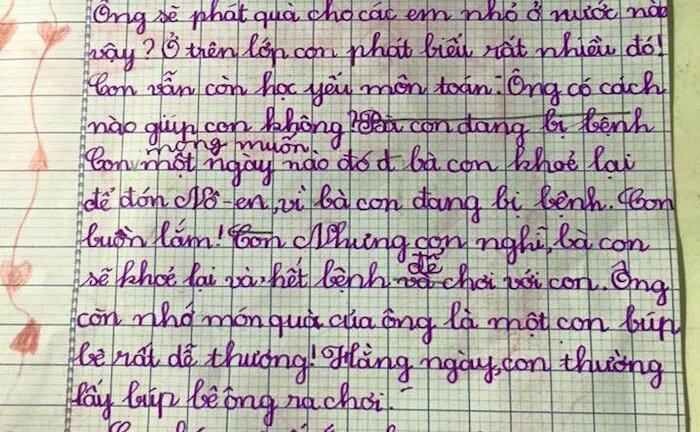 Ông sẽ phát quà cho các em nhỏ ở nước nào
vậy? Ở trên lớp con phát biểu rất nhiều đó!
Con vẫn còn học yếu môn toán. Ông có cách
nào giúp con không? Bà con đang bị bệnh
mong muốn
Con một ngày nào đó d bà con khoẻ lại
để đón Nô-en, vì bà con đang bị bệnh. Con
buồn lắm! Con Nhưng con nghĩ, bà con
để
sẽ khoẻ lại và hết bệnh và chơi với con. Ông
còn nhớ món quà của ông là một con búp
bê rất dễ thương! Hằng ngày, con thường
lấy búp bê ông ra chơi.